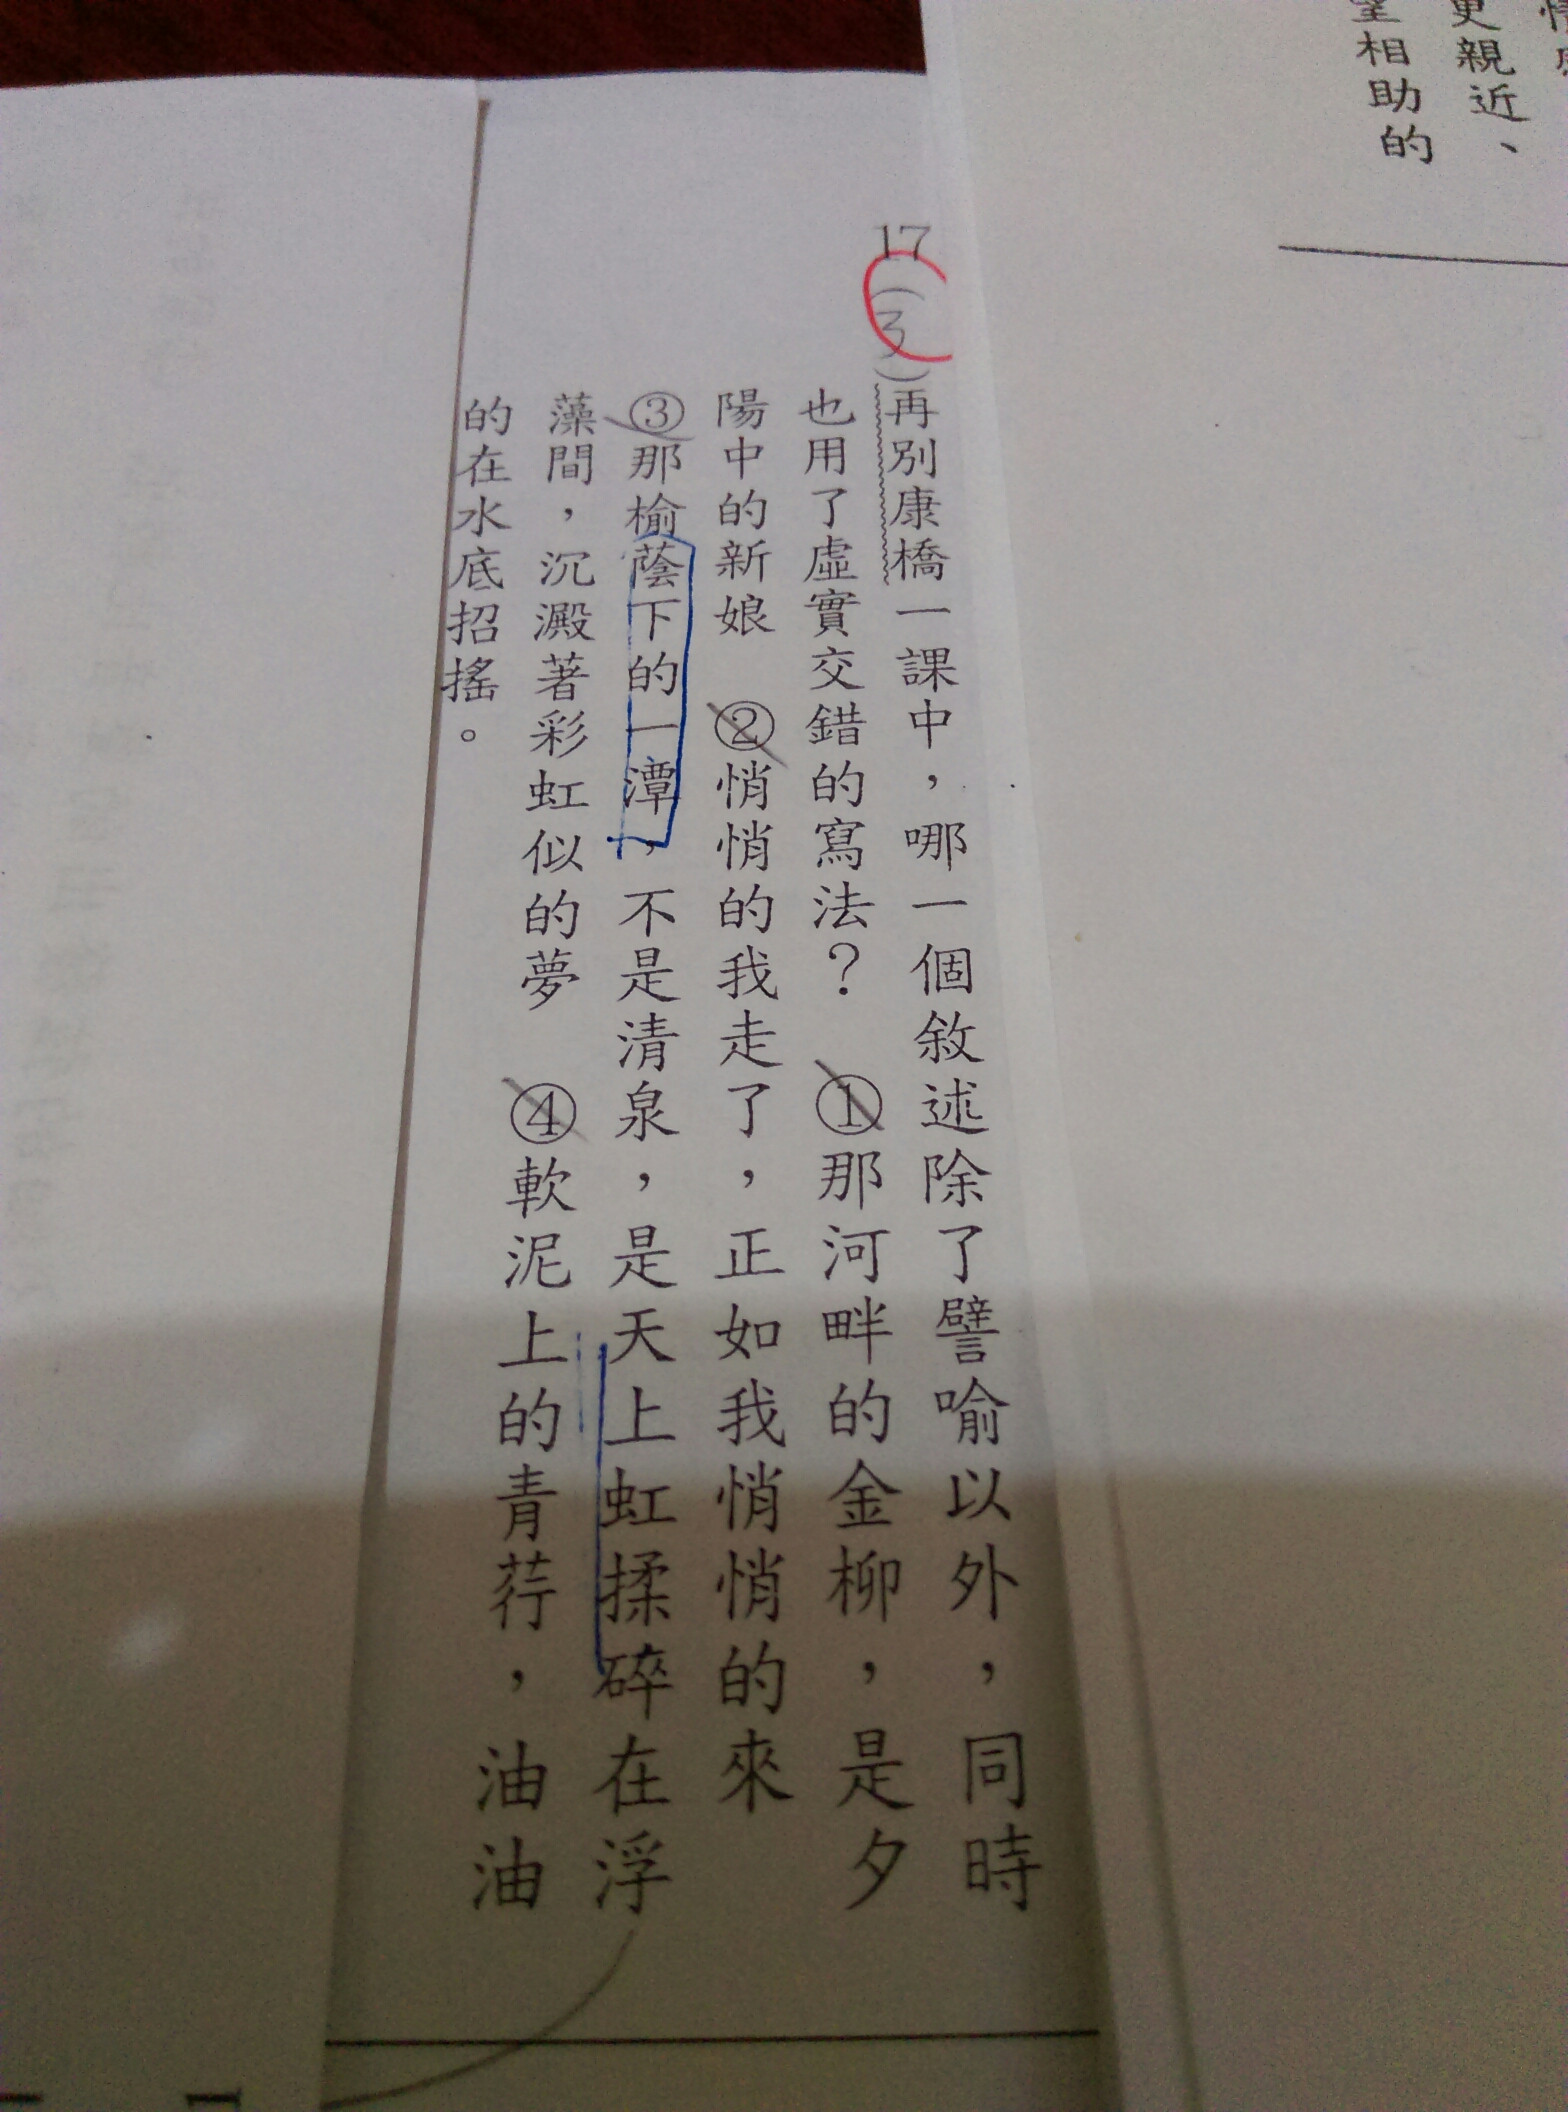 情
更親近、
望相助的
17(3)再別康橋一課中，哪一個敘述除了譬喻以外，同時
也用了虛實交錯的寫法？　①那河畔的金柳，是夕
陽中的新娘　②悄悄的我走了，正如我悄悄的來
③那榆蔭下的一潭，不是清泉，是天上虹揉碎在浮
藻間，沉澱著彩虹似的夢　④軟泥上的青荇，油油
的在水底招搖。